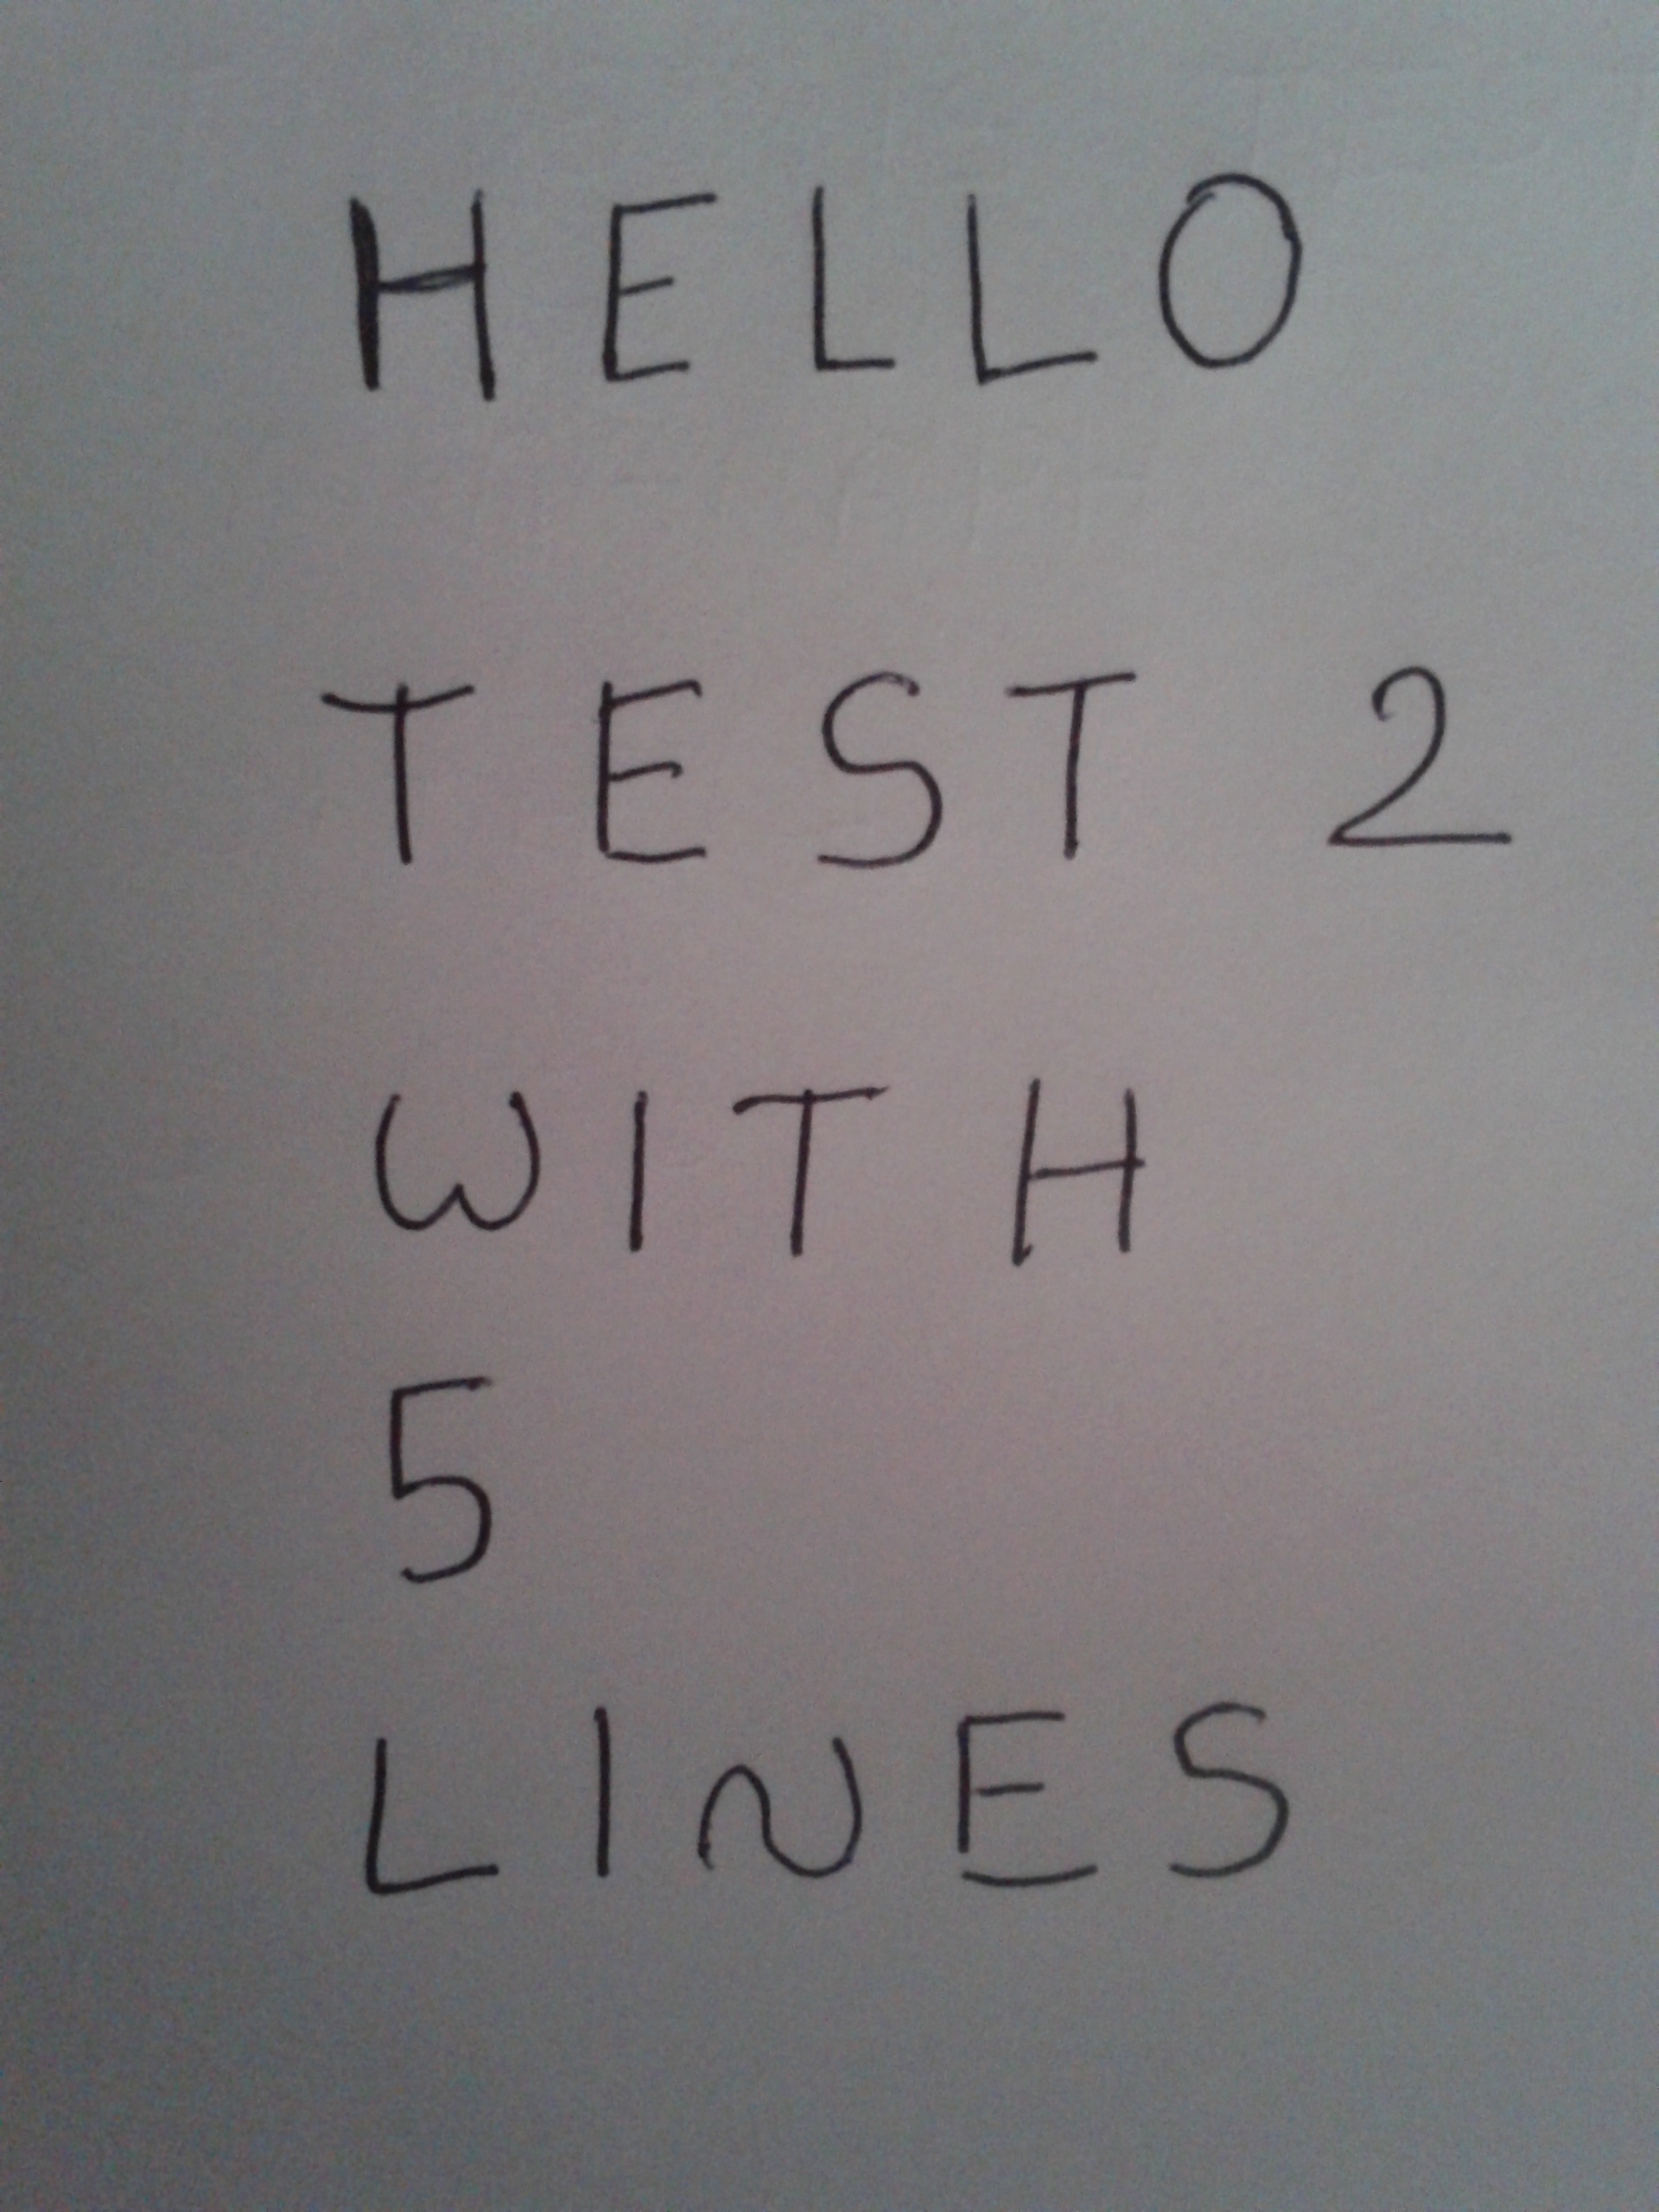 HELLO
TEST 2
WITH
5
LINES